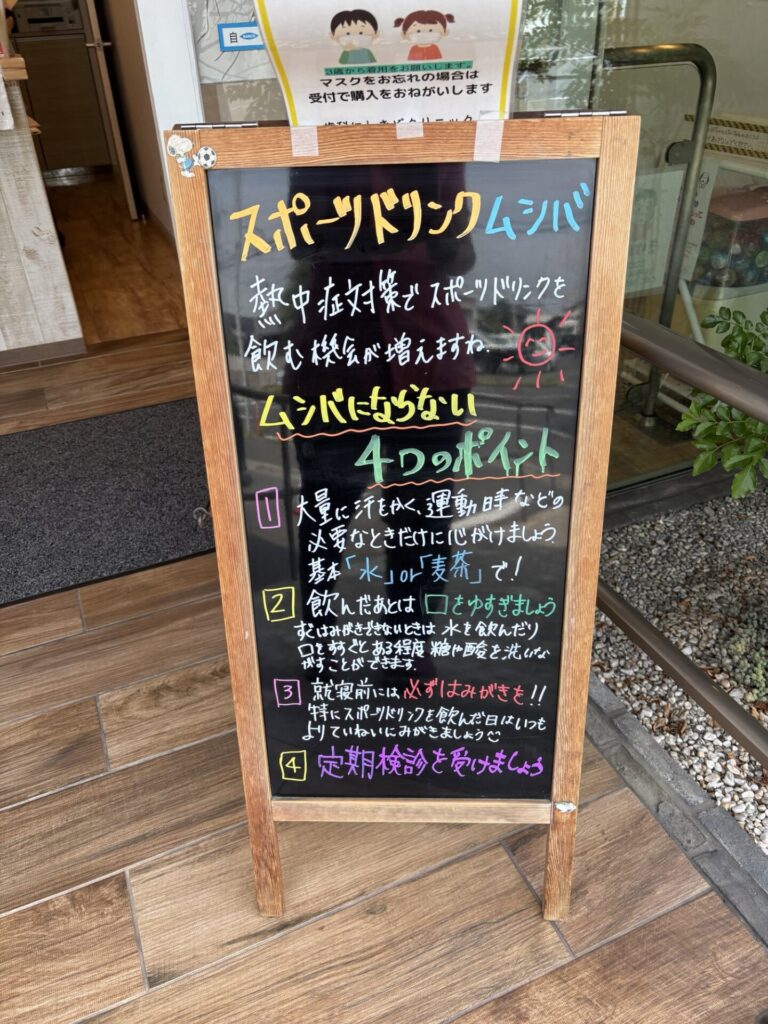 自
3歳から着用をお願いします。
マスクをお忘れの場合は
受付で購入をおねがいします
スポーツドリンクムシバ
熱中症対策で スポーツドリンクを
飲む機会が増えますね.
ムシバにならない
4つのポイント
1 大量に汗をかく、運動時などの
必要なときだけに心がけましょう
基本「水」or「麦茶」で!
2 飲んだあとは 口をゆすぎましょう
すぐはみがきできないときは 水を飲んだり
口をすすぐと ある程度 糖や酸を洗いな
がすことができます.
3 就寝前には 必ずはみがきを!!
特にスポーツドリンクを飲んだ日はいつも
よりていねいにみがきましょう
4 定期検診を受けましょう